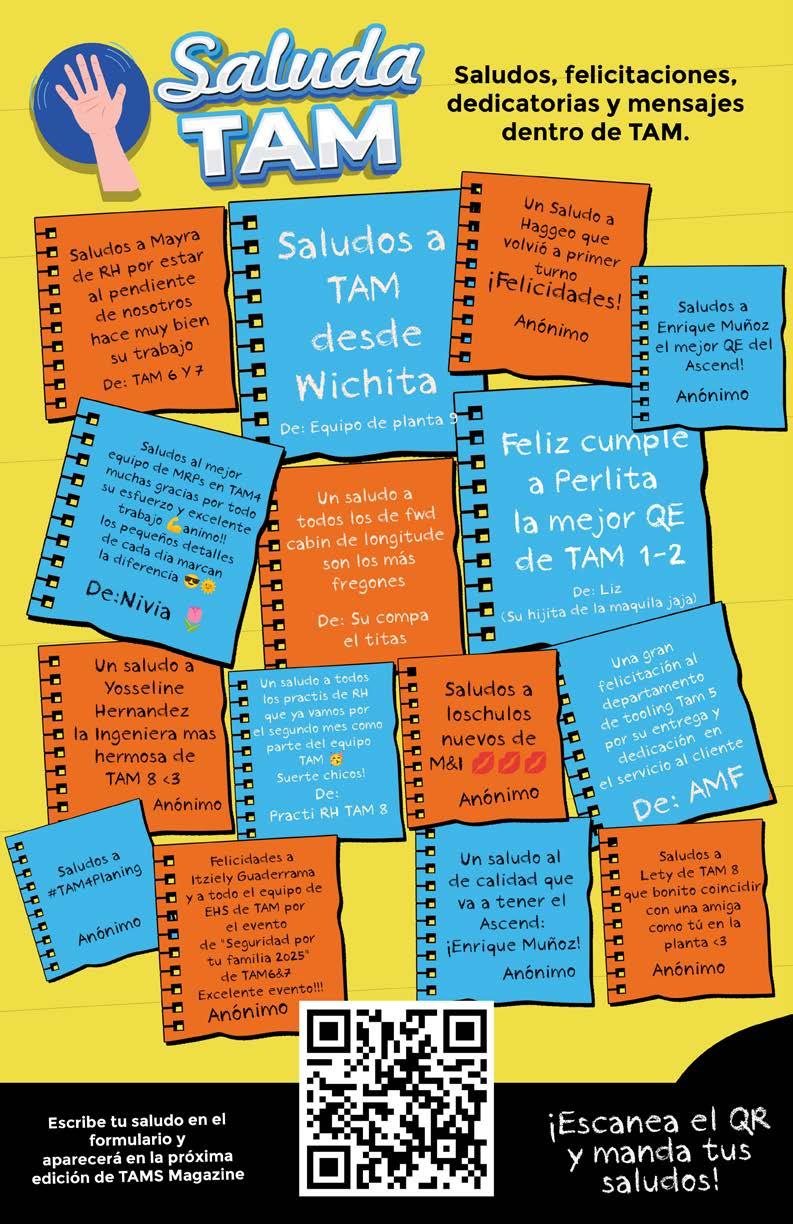 Saluda
TAM
Saludos, felicitaciones,
dedicatorias y mensajes
dentro de TAM.
Saludos a Mayra
de RH por estar
al pendiente
de nosotros
hace muy bien
su trabajo
De: TAM 6 Y 7
Saludos a
TAM
desde
Wichita
De: Equipo de planta 9
Un Saludo a
Haggeo que
volvió a primer
turno
¡Felicidades!
Anónimo
Saludos a
Enrique Muñoz
el mejor QE del
Ascend!
Anónimo
Saludos al mejor
equipo de MRPs en TAM4
muchas gracias por todo
su esfuerzo y excelente
trabajo 💪animo!!
los pequeños detalles
de cada dia marcan
la diferencia 😎🌞
De:Nivia 🌷
Un saludo a
todos los de fwd
cabin de longitude
son los más
fregones
De: Su compa
el titas
Feliz cumple
a Perlita
la mejor QE
de TAM 1-2
De: Liz
(Su hijita de la maquila jaja)
Un saludo a
Yosseline
Hernandez
la Ingeniera mas
hermosa de
TAM 8 <3
Anónimo
Un saludo a todos
los practis de RH
que ya vamos por
el segundo mes como
parte del equipo
TAM 🥳
Suerte chicos!
De:
Practi RH TAM 8
Saludos a
loschulos
nuevos de
M&I 💋💋💋
Anónimo
Una gran
felicitación al
departamento
de tooling Tam 5
por su entrega y
dedicación en
el servicio al cliente
De: AMF
Saludos a
#TAM4Planing
Anónimo
Felicidades a
Itziely Guaderrama
y a todo el equipo de
EHS de TAM por
el evento
de "Seguridad por
tu familia 2025"
de TAM6&7
Excelente evento!!!
Anónimo
Un saludo al
de calidad que
va a tener el
Ascend:
¡Enrique Muñoz!
Anónimo
Saludos a
Lety de TAM 8
que bonito coincidir
con una amiga
como tú en la
planta <3
Anónimo
Escribe tu saludo en el
formulario y
aparecerá en la próxima
edición de TAMS Magazine
¡Escanea el QR
y manda tus
saludos!